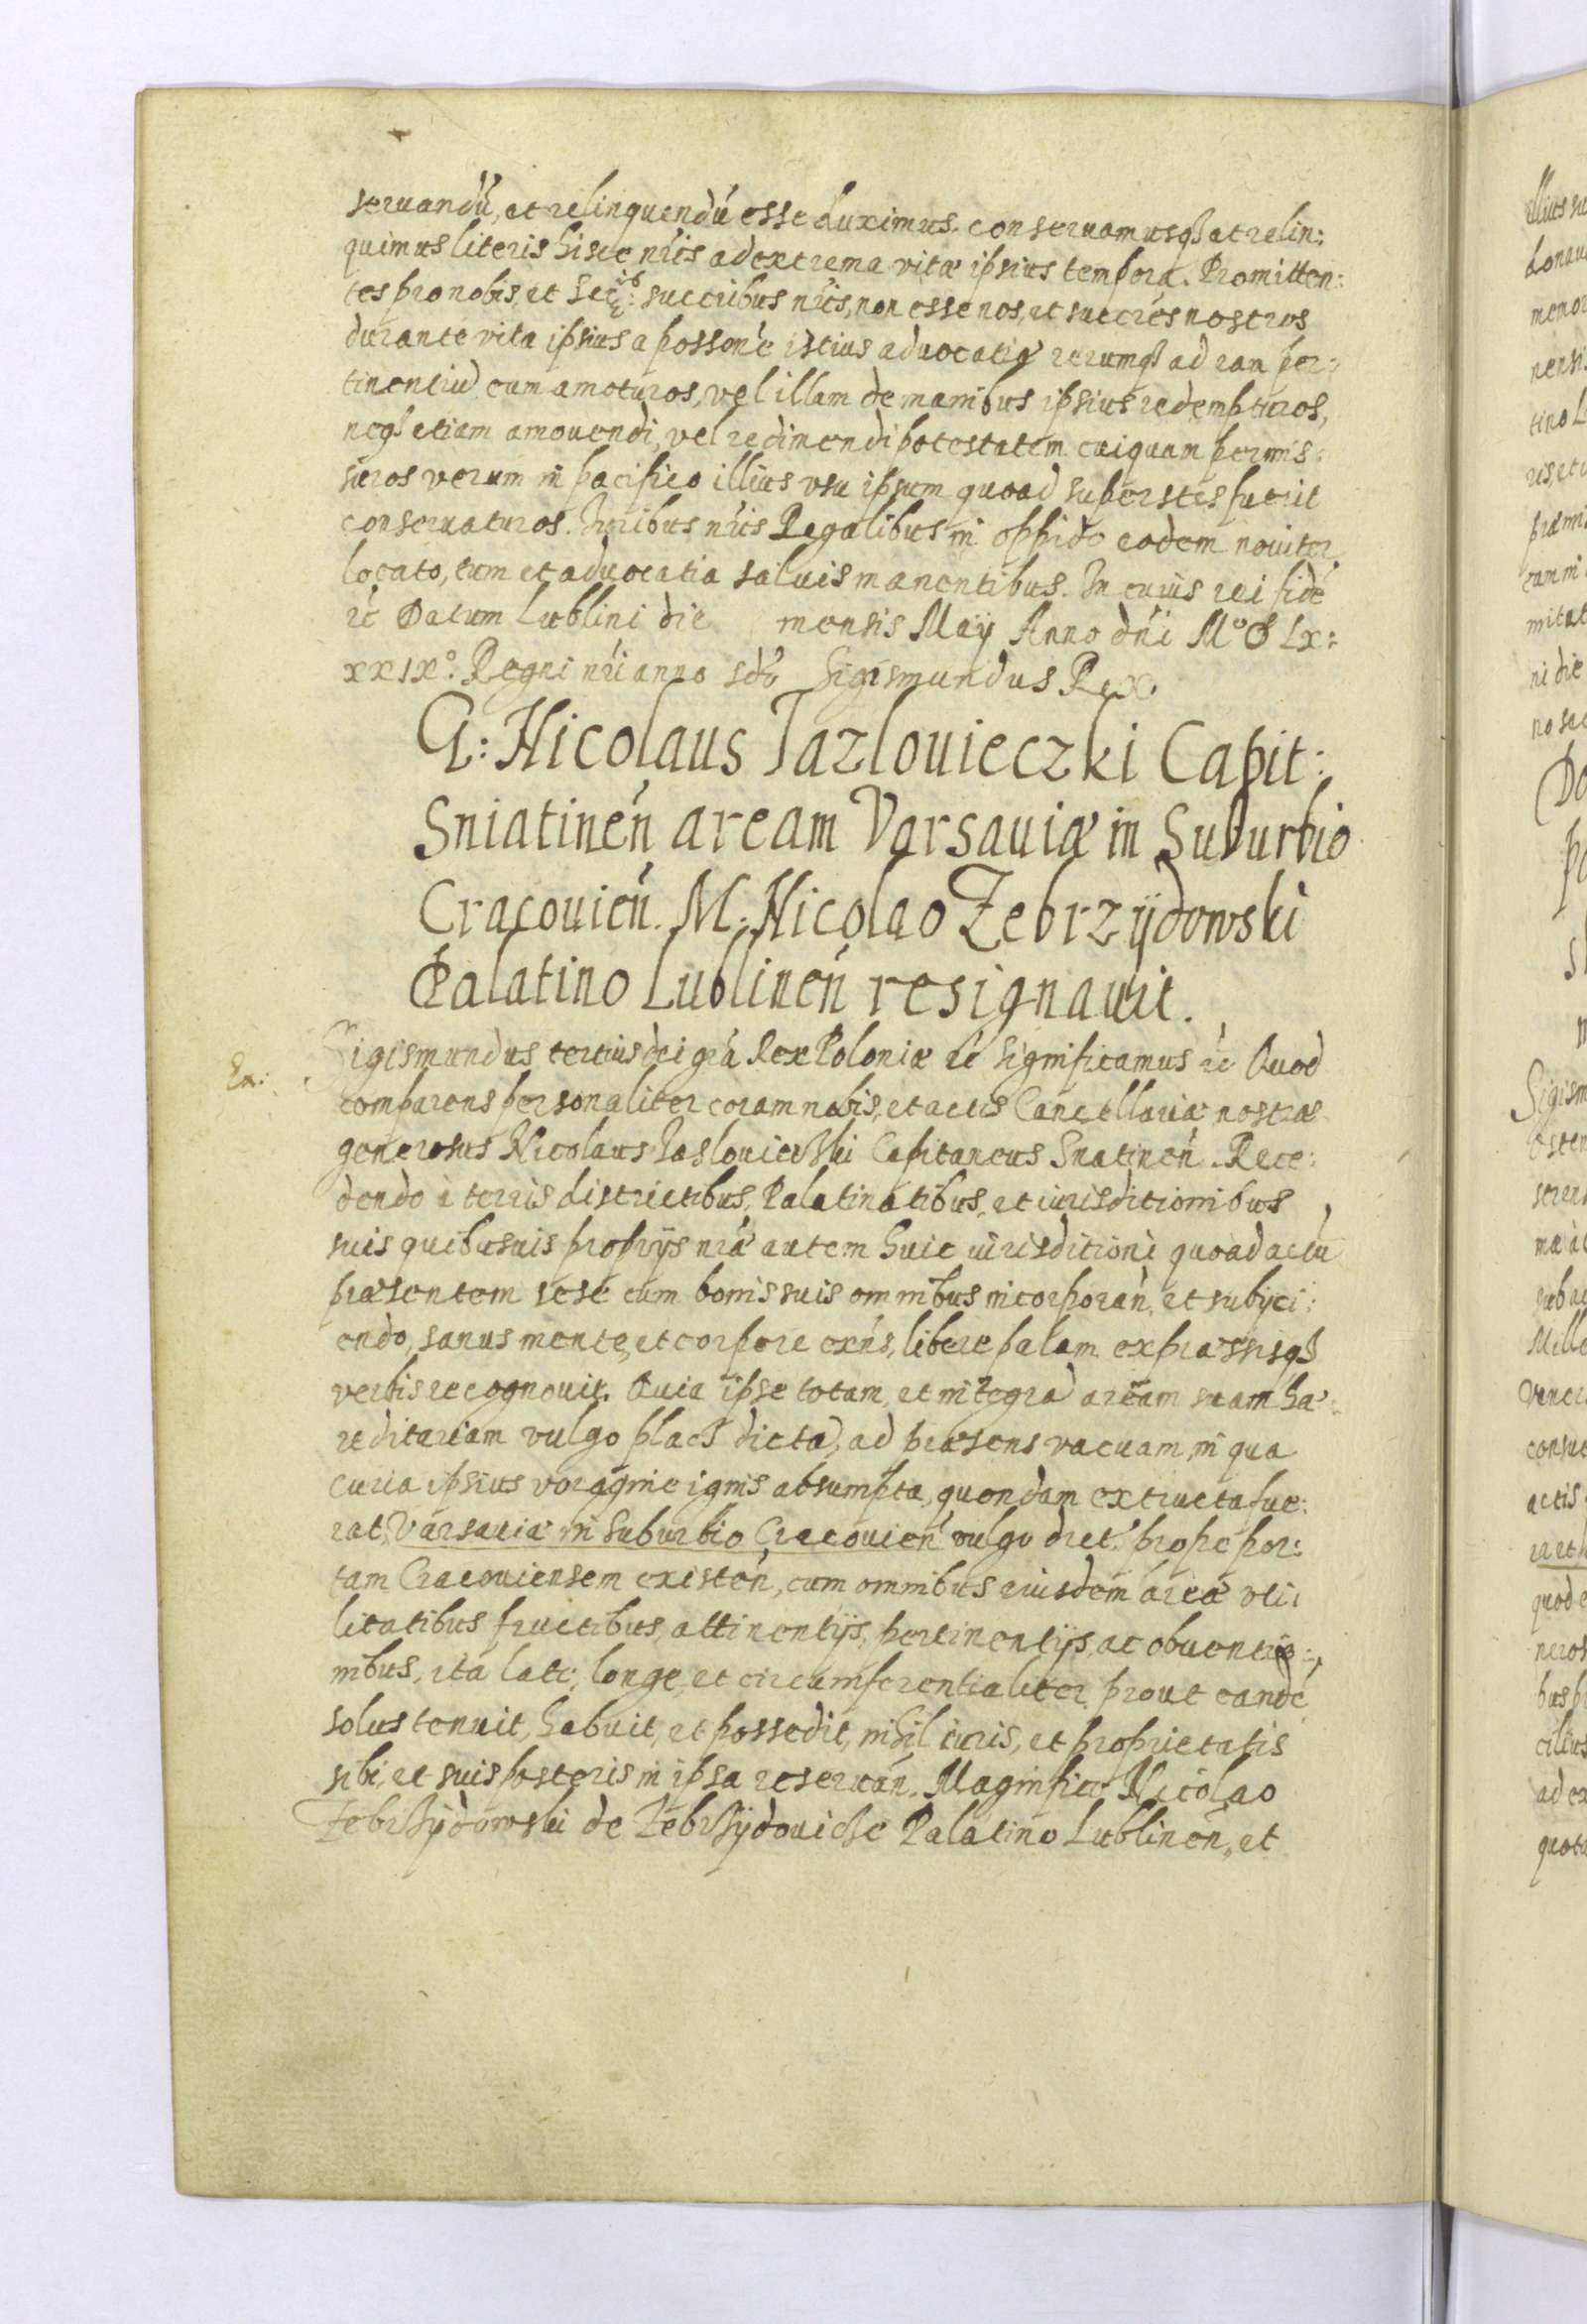 seruandū, et relinquendū esse duximus. conseruamusq₃ et relin:
quimus literis hisce nr̄is ad extrema vitæ ipsius tempora. Promitten:
tes pro nobis, et Ser: succribus nr̄is, non esse nos, et succres nostros
durante vita ipsius a possone istius aduocatiæ rerumq₃ ad eam per:
tinentiū eum amoturos, vel illam de manibus ipsius redempturos,
neq₃ etiam amouendi, vel redimendi potestatem cuiquam permis:
suros verum in pacifico illius vsu ipsum quoad superstes fuerit
conseruaturos. Iuribus nr̄is Regalibus in oppido eodem nouiter
locato, tum et aduocatia saluis manentibus. In cuius rei fidē
rc̄ Datum Lublini die mensis Maÿ Anno dn̄i M° D Lx:
xxix°. Regni nr̄i anno sdō Sigismundus Rex
G: Nicolaus Jazlouieczki Capit:
Sniatineń aream Varsauiæ in Suburbio
Cracouień. M: Nicolao Zebrzÿdowski
Palatino Lublineń resignauit.
Sigismundus tertius dei grā Rex Poloniæ rc̄ Significamus rc̄ Quod
comparens personaliter coram nobis, et actis Cancellariæ nostræ
generosus Nicolaus Jaslouieczki Capitaneus Snatineń. Rece:
dendo à terris districtibus, Palatinatibus, et iurisditionibus
suis quibusuis proprijs nr̄æ autem huic iurisditioni quoad actū
præsentem sese cum bonis suis omnibus incorporań, et subijci:
endo, sanus mente, et corpore exn̄s, libere palam expræssisq₃
verbis recognouit. Quia ipse totam, et integrā aream suam hæ:
reditariam vulgo placz dictā, ad præsens vacuam, in qua
curia ipsius voragine ignis absumpta, quondam extructa fue:
rat, Varsauiæ in suburbio Cracouień vulgo dict: prope por:
tam Cracouiensem existeń, cum omnibus eiusdem areæ vti:
litatibus fructibus, attinentijs, pertinentijs, ac obuentio:
nibus, ita late, longe, et circumferentialiter prout eandē
solus tenuit, habuit, et possedit, nihil iuris, et proprietatis
sibi, et suis posteris in ipsa reseruań. Magnifico Nicolao
Zebrzÿdowski de Zebrzÿdouicze Palatino Lublineń, et